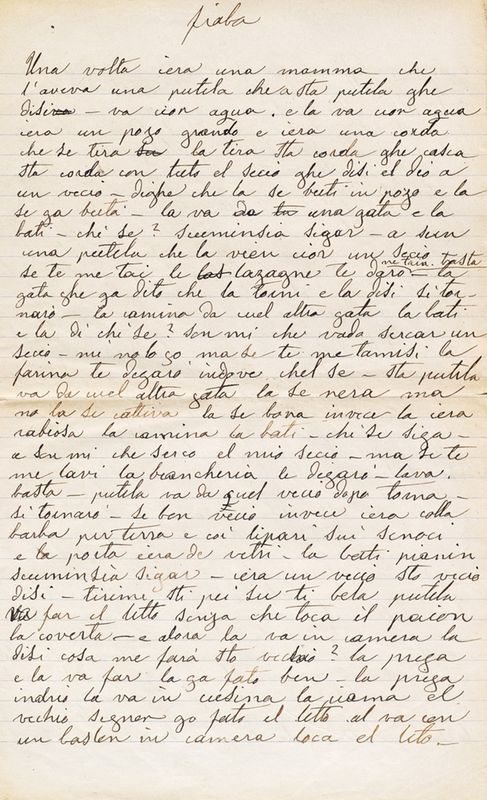 fiaba
Una volta iera una mamma che
l'aveva una putela che a sta putela ghe
disiva - va cior agua. e la va cior agua
iera un pozo grando e iera una corda
che se tira su la tira sta corda ghe casca
sta corda con tuto el secio ghe disi el dio a
un vecio - dighe che la se buti in pozo e la
se ga butà - la va da tu una gata e la
bati - chi se? scuminsia sigar - a son
una putela che la vien cior un secio
se te me tai le las lazagne te darò - me tain. basta - la
gata ghe ga dito che la torni e la disi sì tor-
narò - la camina da cuel altra gata la bati
e la di chi se? son mi che vado sercar un
secio - mi no lo go ma se te me tamisi la
farina te degarò indove chel se - sta putela
va da cuel altra gata la se nera ma
no la se cattiva la se bona invece la iera
rabiosa la camina la bati - chi se siga -
a son mi che serco el mio secio - ma se te
me lavi la biancheria le degarò - lava.
basta - putela va da quel vecio dopo torna -
sì tornarò - se bon vecio invece iera colla
barba per terra e coi lipari sui senoci
e la porta iera de vetri - la bati pianin
scuminsia sigar - iera un vecio sto vecio
disi - tirime sti pei su ti bela putela
Va far il letto senza che toca il paion
la coverta - e alora la va in camera la
disi cosa me farà sto vecio? la prega
e la va far la ga fato ben - la prega
indrio la va in cusina la ciama el
vechio signor go fato il letto al va con
un baston in camera toca el leto. -